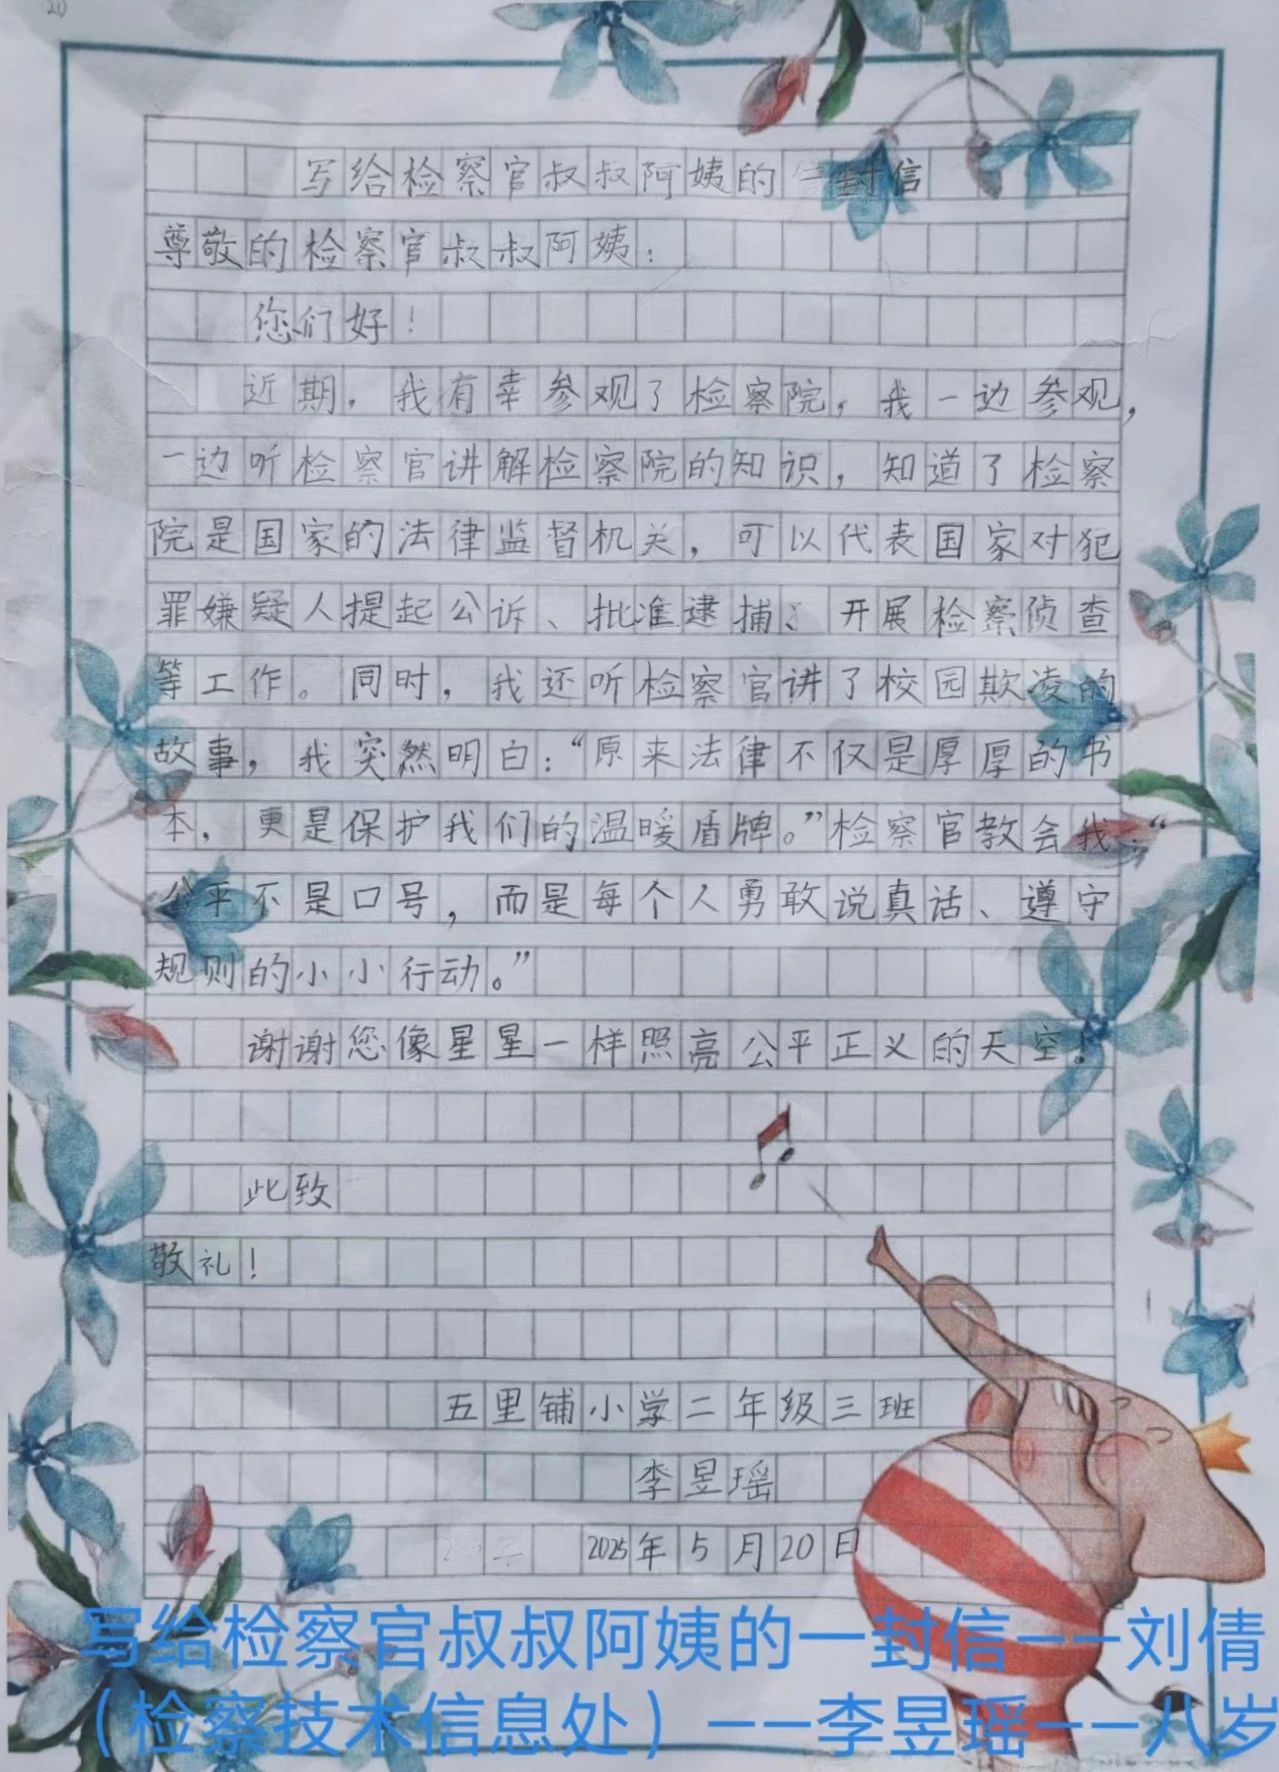 写给检察官叔叔阿姨的 封信
尊敬的检察官叔叔阿姨：
您们好！
近期，我有幸参观了检察院，我一边参观，
一边听检察官讲解检察院的知识，知道了检察
院是国家的法律监督机关，可以代表国家对犯
罪嫌疑人提起公诉、批准逮捕、开展检察侦查
等工作。同时，我还听检察官讲了校园欺凌的
故事，我突然明白：“原来法律不仅是厚厚的书
本，更是保护我们的温暖盾牌。”检察官教会我：“
公平不是口号，而是每个人勇敢说真话、遵守
规则的小小行动。”
谢谢您像星星一样照亮公平正义的天空！
此致
敬礼！
五里铺小学二年级三班
李昱瑶
2025年5月20日
写给检察官叔叔阿姨的一封信——刘倩
（检察技术信息处）——李昱瑶——八岁